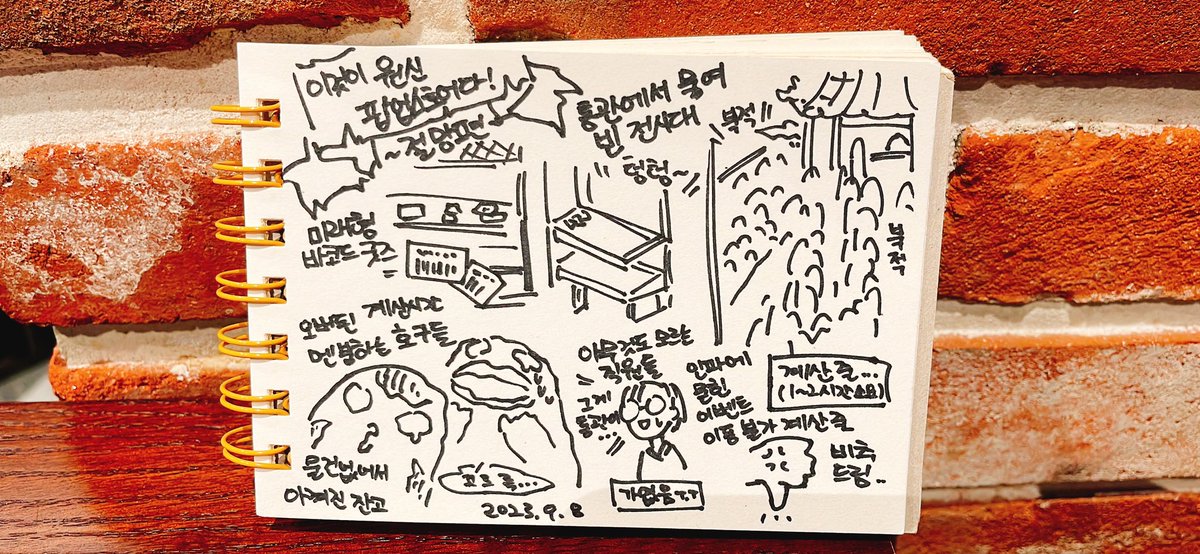 이것이 원신
팝업스토어다!
~절망편
통관에서 묶여
빈 전시대
텅텅~
북적!!
북적
미래형
바코드 굿즈
오버된 계심시간
멘붕하는 호구들
물건없어서
아껴진 잔고
꼬르륵...
2023.9.8
아무것도 모르는
직원들
그게
통관이
...
가엾음ㅜㅜ
인파에
몰린
이벤트
이동 불가 계산줄
계산줄...
(1~2시간 소요)
비추
드림..